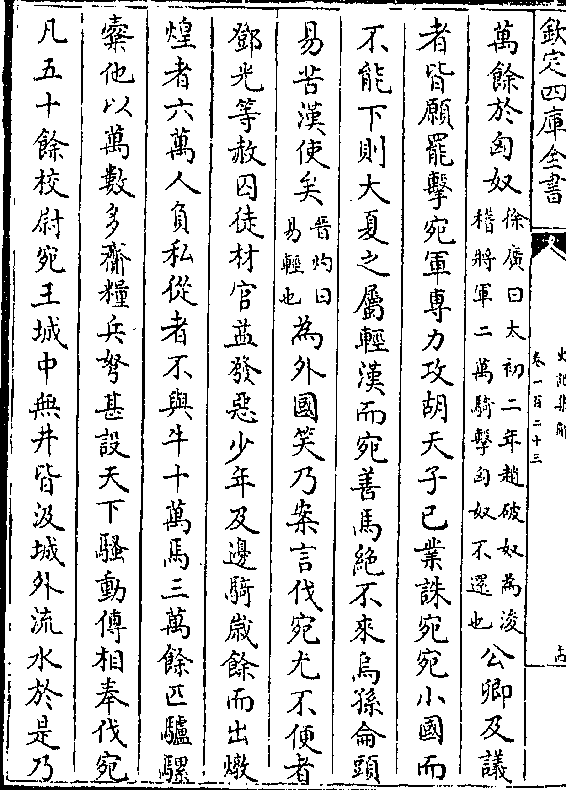 欽定四庫全書
史記集解
卷一百二十三
萬餘於匈奴徐廣曰太初二年趙破奴為浚
稽將軍二萬騎擊匈奴不還也公卿及議
者皆願罷擊宛軍專力攻胡天子已業誅宛宛小國而
不能下則大夏之屬輕漢而宛善馬絶不來烏孫侖頭
易苦漢使矣晉灼曰
易輕也為外國笑乃案言伐宛尤不便者
鄧光等赦囚徒材官益發惡少年及邊騎嵗餘而出燉
煌者六萬人負私從者不與牛十萬馬三萬餘匹驢騾
橐他以萬數多齎糧兵弩甚設天下騷動傳相奉伐宛
凡五十餘校尉宛王城中無井皆汲城外流水於是乃